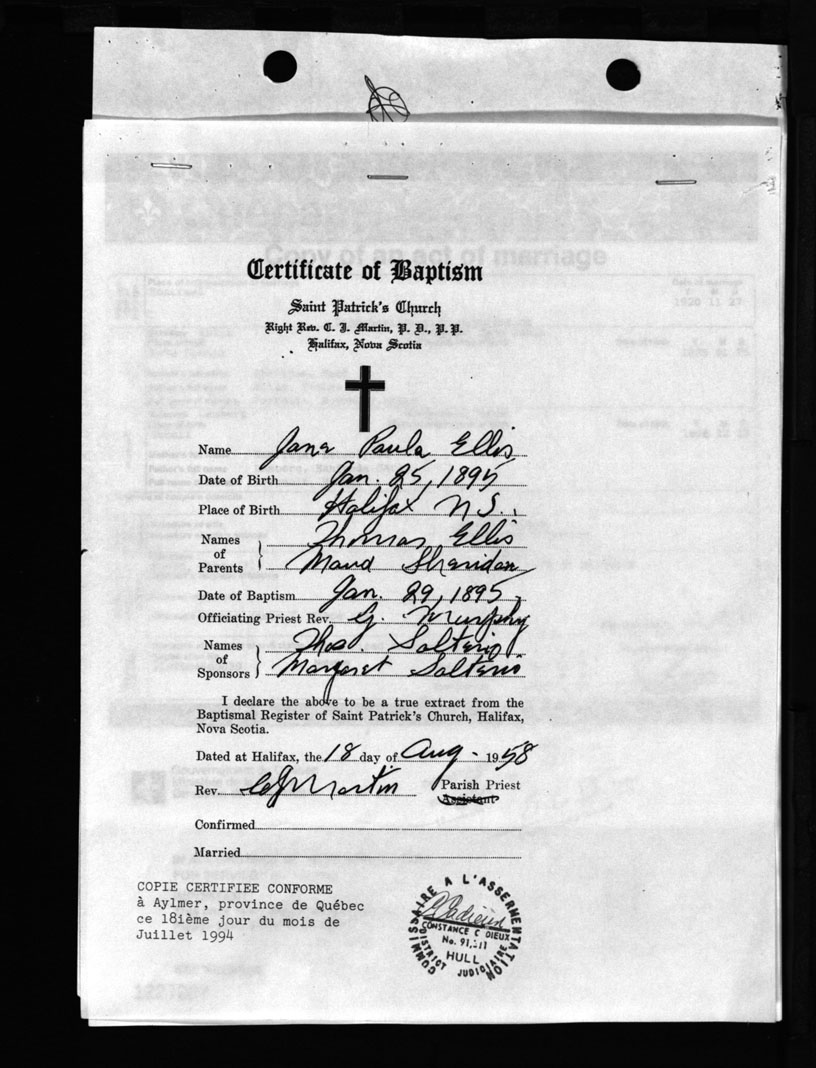 Copy of an act of marriage
1920 11 27
Certificate of Baptism
Saint Patrick's Church
Right Rev. C. J. Martin, P. D., P. P.
Halifax, Nova Scotia
Name Jane Paula Ellis
Date of Birth Jan. 25, 1895
Place of Birth Halifax N.S.
Names of Parents } Thomas Ellis
Maud Sheridan
Date of Baptism Jan. 29, 1895
Officiating Priest Rev. G. Murphy
Names of Sponsors } Thos. Solterio
Margaret Solterio
I declare the above to be a true extract from the
Baptismal Register of Saint Patrick's Church, Halifax,
Nova Scotia.
Dated at Halifax, the 18 day of Aug. 1958
Rev. CJ Martin Parish Priest
Assistant
Confirmed
Married
COPIE CERTIFIEE CONFORME
à Aylmer, province de Québec
ce 18ième jour du mois de
Juillet 1994
COMMISSAIRE A L'ASSERMENTATION
CONSTANCE C DIEUX
No. 91,311
HULL
DISTRICT JUDICIAIRE